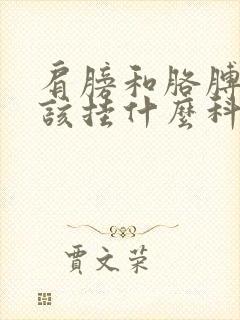 肩膀和胳膊
該挂什麼科
賈文荣